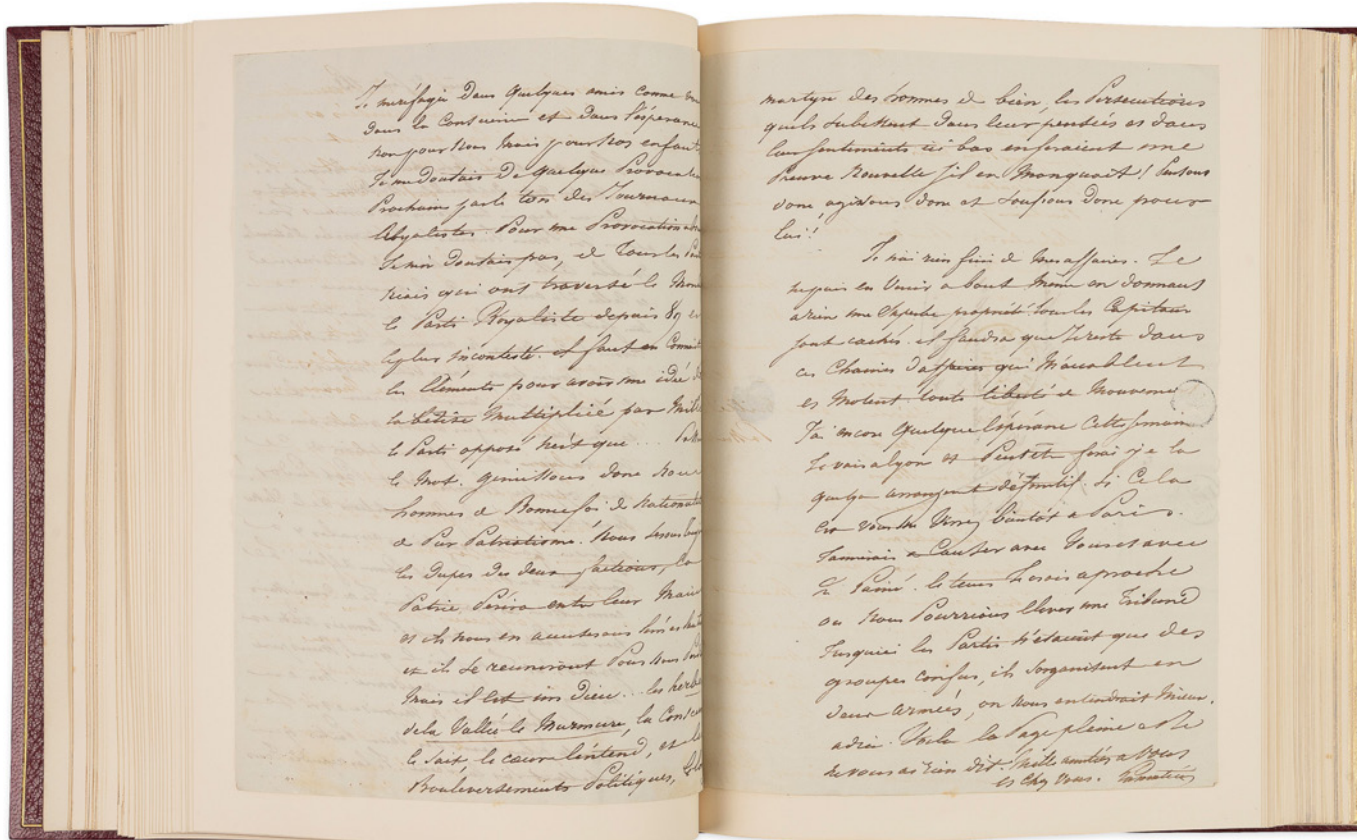 Je me réfugie dans quelques amis comme
dans la Conscience et dans l'espérance
non pour nous mais pour nos enfants
Je me doutais de quelques Provocation
Prochaine par le ton des Journaux
Royalistes. Pour une Provocation
Je n'en doutais pas, et Tous les
niais qui ont traversé le Monde
le Parti Royaliste depuis 89
le plus incontesté. il faut en
les Eléments pour avoir une idée de
la bêtise Multipliée par
le Parti opposé n'est que ...
le Mot. gémissons donc nous
hommes de Bonne foi de Nationalité
de Pur Patriotisme. Nous
les Dupes des deux factions, la
Patrie Périra entre leur Mains
et ils nous en accuserons
et ils se reuniront Pour nous
Mais il Est un Dieu ... les herbes
de la Vallée le Murmure, la
le Sait, le coeur l'entend, et les
Bouleversements Politiques, le
martyre des hommes de bien, les Persecutions
quils subissent Dans leur pensées et dans
leur Sentiments ici bas en feraient une
Preuve Nouvelle s'il en Manquait! Pensons
donc agissons donc et souffrons Donc pour
lui!
Je n'ai rien fini de mes affaires. Je
ne puis en Venir a bout Même en donnant
a rien une Superbe propriété. tous les Capitaux
sont cachés. il faudra que Je reste dans
ces Chaines d'affaires qui M'accablent
et M'otent toute liberté de Mouvement
J'ai encore Quelque Espérance Cette semaine
Je vais a lyon et Peutetre ferai je la
quelque arrangement définitif. Si Cela
est Vous me Verrez bientôt a Paris.
J'aimerais a Causer avec Vous et avec
le tems Serais aproche
ou Nous Pourrions Elever une Tribune
Jusquici les Partis n'étaient que des
groupes confus, ils s'organisent en
deux armées, on Nous entendrait Mieux.
adieu. Voila la Page pleine et Je
ne vous ai rien dit. Mille amitiés a Vous
et chez Vous. Lamartine